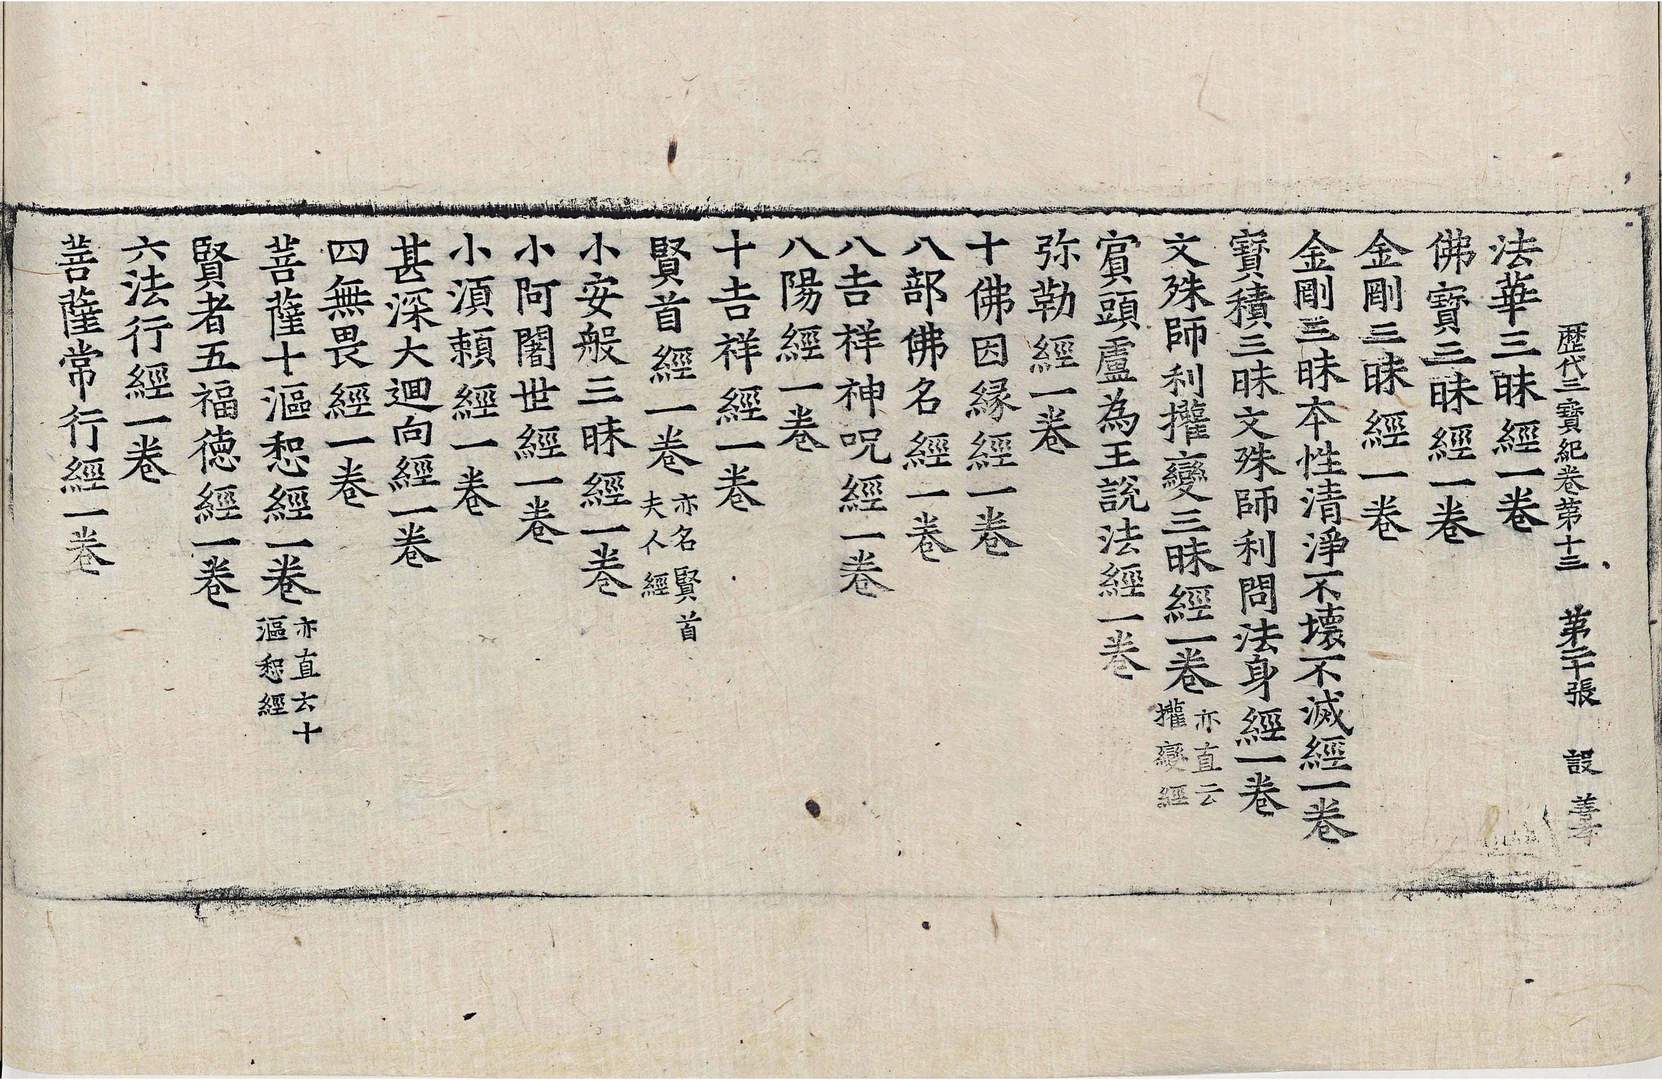 歷代三寶紀卷第十三 第二十張 設
法華三昧經一卷
佛寶三昧經一卷
金剛三昧經一卷
金剛三昧本性清淨不壞不滅經一卷
寶積三昧文殊師利問法身經一卷
文殊師利權變三昧經一卷 亦直云權變經
賓頭盧為王說法經一卷
弥勒經一卷
十佛因緣經一卷
八部佛名經一卷
八吉祥神呪經一卷
八陽經一卷
十吉祥經一卷
賢首經一卷 亦名賢首夫人經
小安般三昧經一卷
小阿闍世經一卷
小湏賴經一卷
甚深大迴向經一卷
四無畏經一卷
菩薩十漚惒經一卷 亦直云十漚惒經
賢者五福德經一卷
六法行經一卷
菩薩常行經一卷